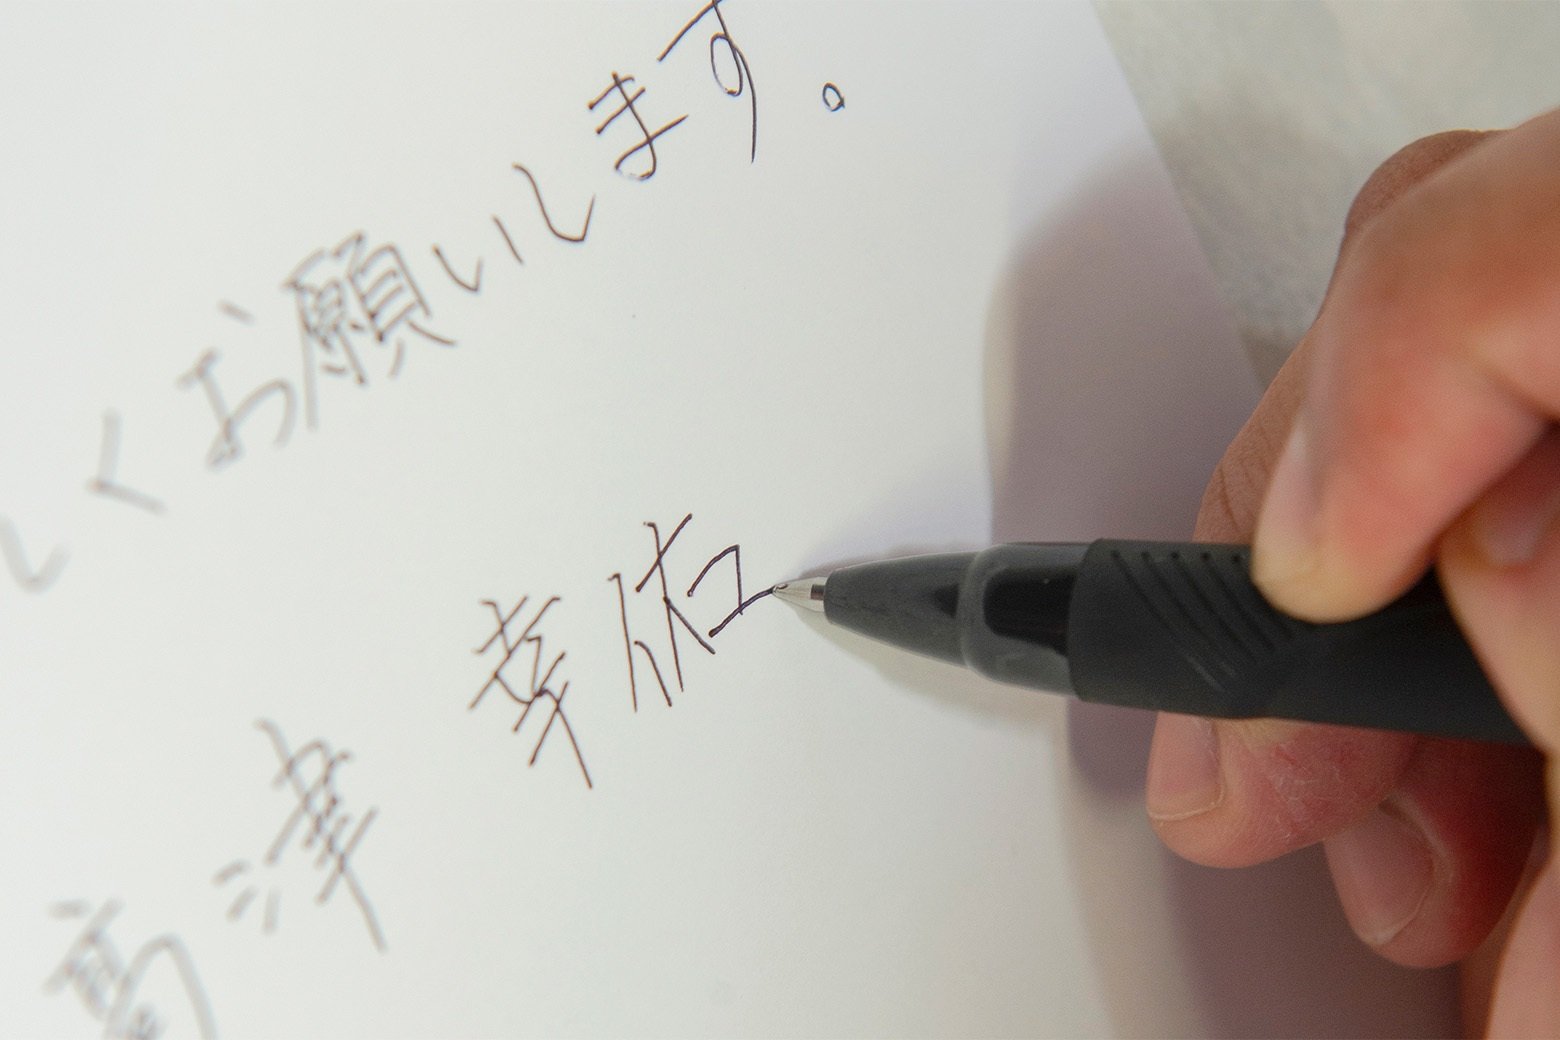 しくお願いします。
高津 幸佑